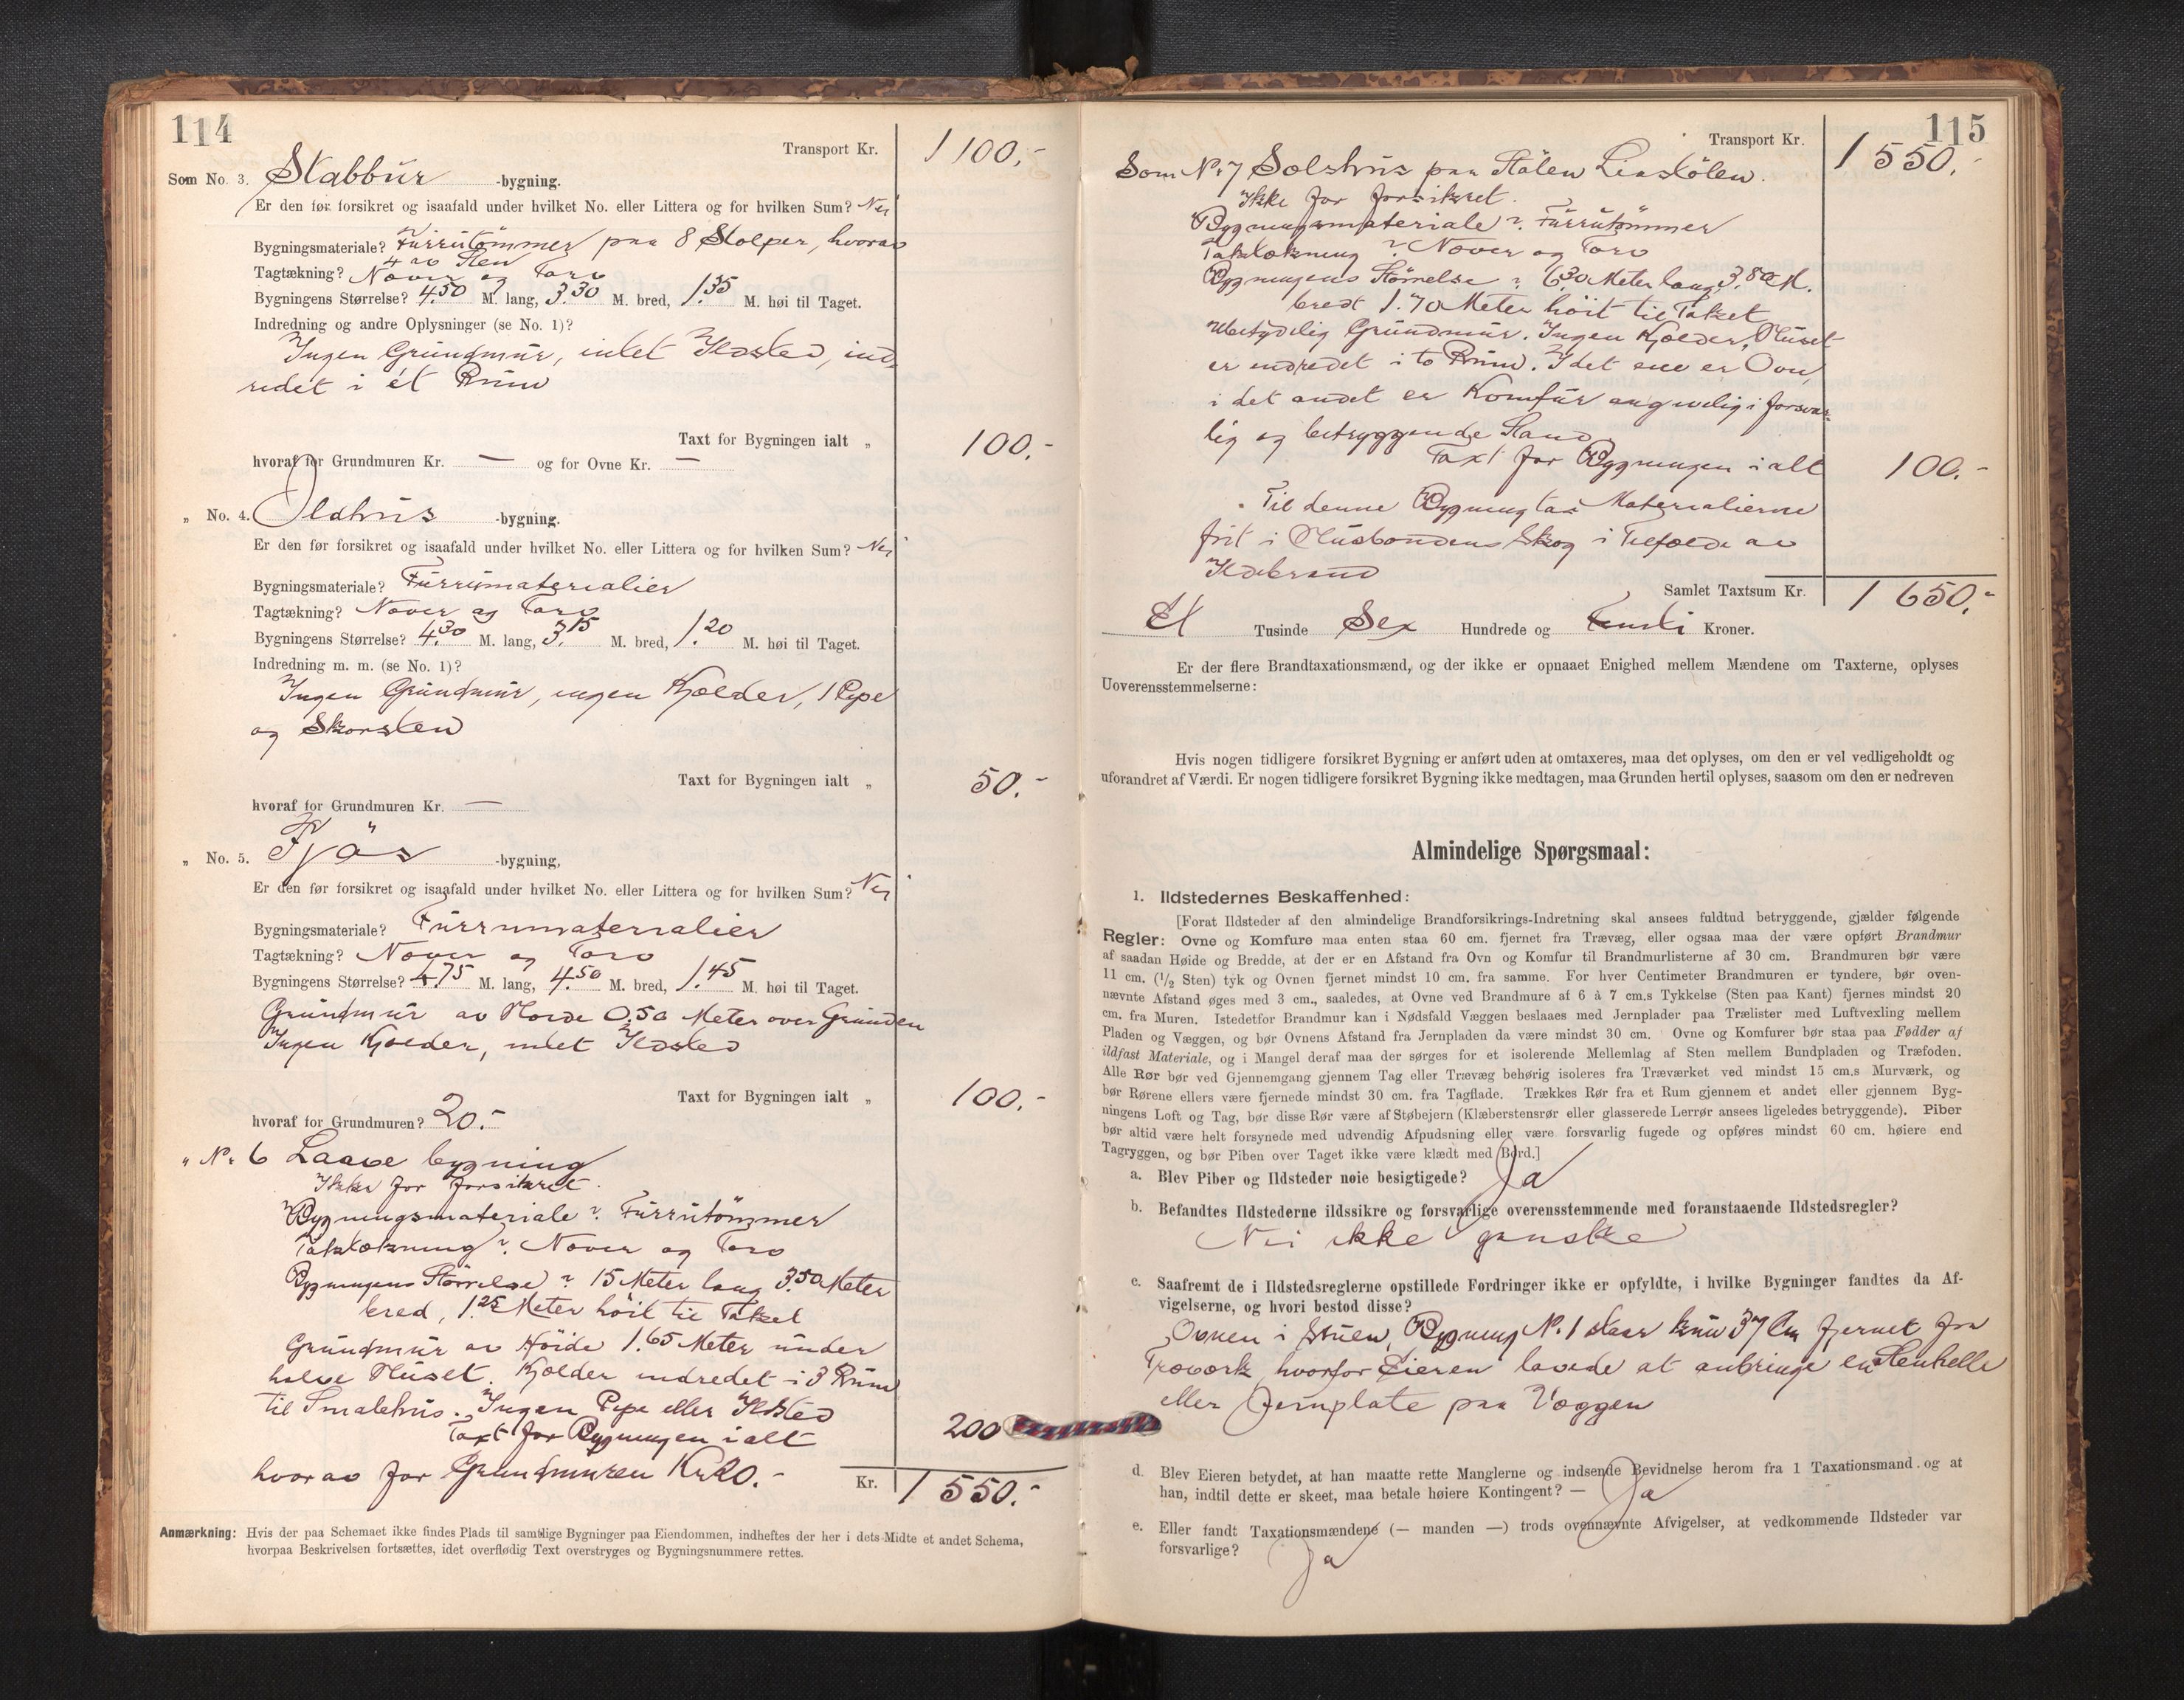 114
Transport Kr. 1 100,-
Som No. 3. Stabbur -bygning.
Er den før forsikret og isaafald under hvilket No. eller Littera og for hvilken Sum? Nei
Bygningsmateriale? Furrutömmer paa 8 Stolper, hvorav
4 av Sten
Tagtækning? Næver og Torv
Bygningens Størrelse? 4.50 M. lang, 3.30 M. bred, 1.35 M. høi til Taget.
Indredning og andre Oplysninger (se No. 1)?
Ingen Grundmur, intet Ildsted, ind-
redet i ét Rum
Taxt for Bygningen ialt „ 100.-
hvoraf for Grundmuren Kr. — og for Ovne Kr. —
„ No. 4. Ildhus -bygning.
Er den før forsikret og isaafald under hvilket No. eller Littera og for hvilken Sum? Nei
Bygningsmateriale? Furrumaterialier
Tagtækning? Næver og Torv
Bygningens Størrelse? 4.30 M. lang, 3.15 M. bred, 1.20 M. høi til Taget.
Indredning m. m. (se No. 1)?
Ingen Grundmur, ingen Kjælder, 1 Pipe
og Skorsten
Taxt for Bygningen ialt „ 50.-
hvoraf for Grundmuren Kr. —
„ No. 5. Fjös -bygning,
Er den før forsikret og isaafald under hvilket No. eller Littera og for hvilken Sum? Nei
Bygningsmateriale? Furrumaterialier
Tagtækning? Næver og Torv
Bygningens Størrelse? 4.75 M. lang, 4.50 M. bred, 1.45 M. høi til Taget.
Grundmur av Høide 0.50 Meter over Grunden
Ingen Kjælder, intet Ildsted
Taxt for Bygningen ialt „ 100.-
hvoraf for Grundmuren? 20.-
„ No. 6 Laave bygning
Ikke før forsikret.
Bygningsmateriale? Furrutömmer
Taktækning? Næver og Torv
Bygningens Størrelse? 15 Meter lang 3.50 Meter
bred, 1.25 Meter höit til Taket
Grundmur av Höide 1.65 Meter under
halve Huset. Kjælder indredet i 3 Rum
til Smalehus. Ingen Pipe eller Ildsted
Taxt for Bygningen ialt 200
hvorav for Grundmuren Kr 20.-
Kr. 1 550.-
Anmærkning: Hvis der paa Schemaet ikke findes Plads til samtlige Bygninger paa Eiendommen, indheftes der her i dets Midte et andet Schema,
hvorpaa Beskrivelsen fortsættes, idet overflødig Text overstryges og Bygningsnummere rettes.
115
Transport Kr. 1 550.-
Som No. 7 Sælshus paa Stölen Liastölen.
Ikke før forsikret.
Bygningsmateriale? Furrutömmer
Taktækning? Næver og Torv
Bygningens Størrelse? 6.30 Meter lang, 3.80 M.
bredt 1.70 Meter höit til Taket
Ubetydelig Grundmur. Ingen Kjælder, Huset
er indredet i to Rum. I det ene er Ovn,
i det andet er Komfur angivelig i forsvar-
lig og betryggende Stand
Taxt for Bygningen ialt 100.-
Til denne Bygning tas Materialierne
frit i Husbondens Skog i Tilfælde av
Ildebrand
Samlet Taxtsum Kr. 1 650.-
Et Tusinde Sex Hundrede og Femti Kroner.
Er der flere Brandtaxationsmænd, og der ikke er opnaaet Enighed mellem Mændene om Taxterne, oplyses
Uoverensstemmelserne:
Hvis nogen tidligere forsikret Bygning er anført uden at omtaxeres, maa det oplyses, om den er vel vedligeholdt og
uforandret af Værdi. Er nogen tidligere forsikret Bygning ikke medtagen, maa Grunden hertil oplyses, saasom om den er nedreven
Almindelige Spørgsmaal:
1. Ildstedernes Beskaffenhed:
[Forat Ildsteder af den almindelige Brandforsikrings-Indretning skal ansees fuldtud betryggende, gjælder følgende
Regler: Ovne og Komfure maa enten staa 60 cm. fjernet fra Trævæg, eller ogsaa maa der være opført Brandmur
af saadan Høide og Bredde, at der er en Afstand fra Ovn og Komfur til Brandmurlisterne af 30 cm. Brandmuren bør være
11 cm. (1/2 Sten) tyk og Ovnen fjernet mindst 10 cm. fra samme. For hver Centimeter Brandmuren er tyndere, bør oven-
nævnte Afstand øges med 3 cm., saaledes, at Ovne ved Brandmure af 6 à 7 cm.s Tykkelse (Sten paa Kant) fjernes mindst 20
cm. fra Muren. Istedetfor Brandmur kan i Nødsfald Væggen beslaaes med Jernplader paa Trælister med Luftvexling mellem
Pladen og Væggen, og bør Ovnens Afstand fra Jernpladen da være mindst 30 cm. Ovne og Komfurer bør staa paa Fødder af
ildfast Materiale, og i Mangel deraf maa der sørges for et isolerende Mellemlag af Sten mellem Bundpladen og Træfoden.
Alle Rør bør ved Gjennemgang gjennem Tag eller Trævæg behørig isoleres fra Træværket ved mindst 15 cm.s Murværk, og
bør Rørene ellers være fjernede mindst 30 cm. fra Tagflade. Trækkes Rør fra et Rum gjennem et andet eller gjennem Byg-
ningens Loft og Tag, bør disse Rør være af Støbejern (Klæberstensrør eller glasserede Lerrør ansees ligeledes betryggende). Piber
bør altid være helt forsynede med udvendig Afpudsning eller være forsvarlig fugede og opføres mindst 60 cm. høiere end
Tagryggen, og bør Piben over Taget ikke være klædt med Bord.]
a. Blev Piber og Ildsteder nøie besigtigede? Ja
b. Befandtes Ildstederne ildssikre og forsvarlige overensstemmende med foranstaaende Ildstedsregler?
Nei ikke ganske
c. Saafremt de i Ildstedsreglerne opstillede Fordringer ikke er opfyldte, i hvilke Bygninger fandtes da Af-
vigelserne, og hvori bestod disse?
Ovnen i Stuen, Bygning No. 1 staar kun 37 Cm fjernet fra
Træværk, hvorfor Eieren lovede at anbringe en Stenhelle
eller Jernplate paa Væggen
d. Blev Eieren betydet, at han maatte rette Manglerne og indsende Bevidnelse herom fra 1 Taxationsmand og at
han, indtil dette er skeet, maa betale høiere Kontingent? — Ja
e. Eller fandt Taxationsmændene (— manden —) trods ovennævnte Afvigelser, at vedkommende Ildsteder var
forsvarlige? Ja